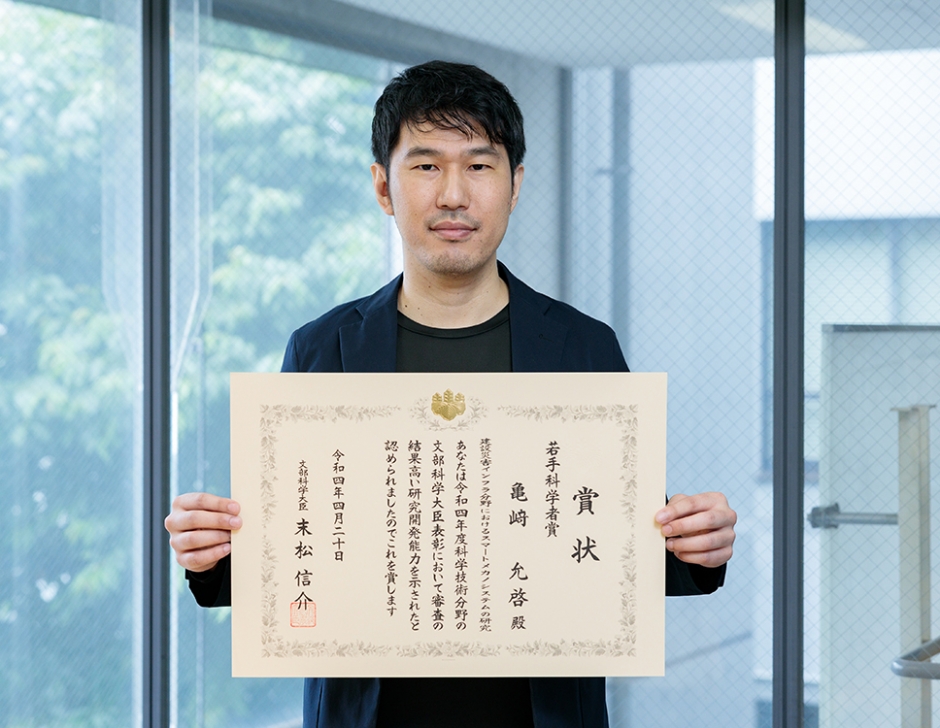 賞状
若手科学者賞
亀﨑 允啓 殿
建設災害インフラ分野におけるスマートメカノシステムの研究
あなたは令和四年度科学技術分野の
文部科学大臣表彰において審査の
結果高い研究開発能力を示されたと
認められましたのでこれを賞します
令和四年四月二十日
文部科学大臣 末松信介